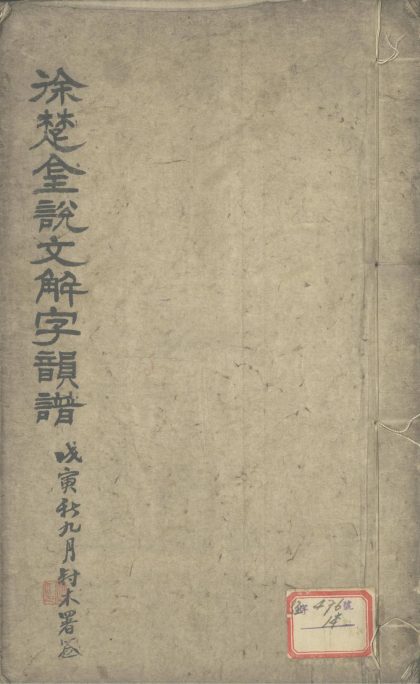 徐楚金說文解字韻譜
戊寅秋九月封木署签
476號
1本